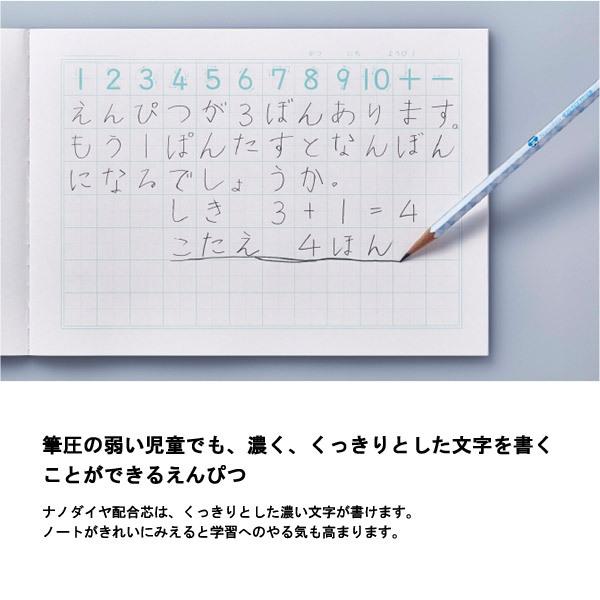 がつ にち ようび（ ）
1 2 3 4 5 6 7 8 9 10 + −
えんぴつが3ぼんあります。
もう1ぽんたすとなんぼん
になるでしょうか。
しき 3+1=4
こたえ 4ほん
筆圧の弱い児童でも、濃く、くっきりとした文字を書く
ことができるえんぴつ
ナノダイヤ配合芯は、くっきりとした濃い文字が書けます。
ノートがきれいにみえると学習へのやる気も高まります。